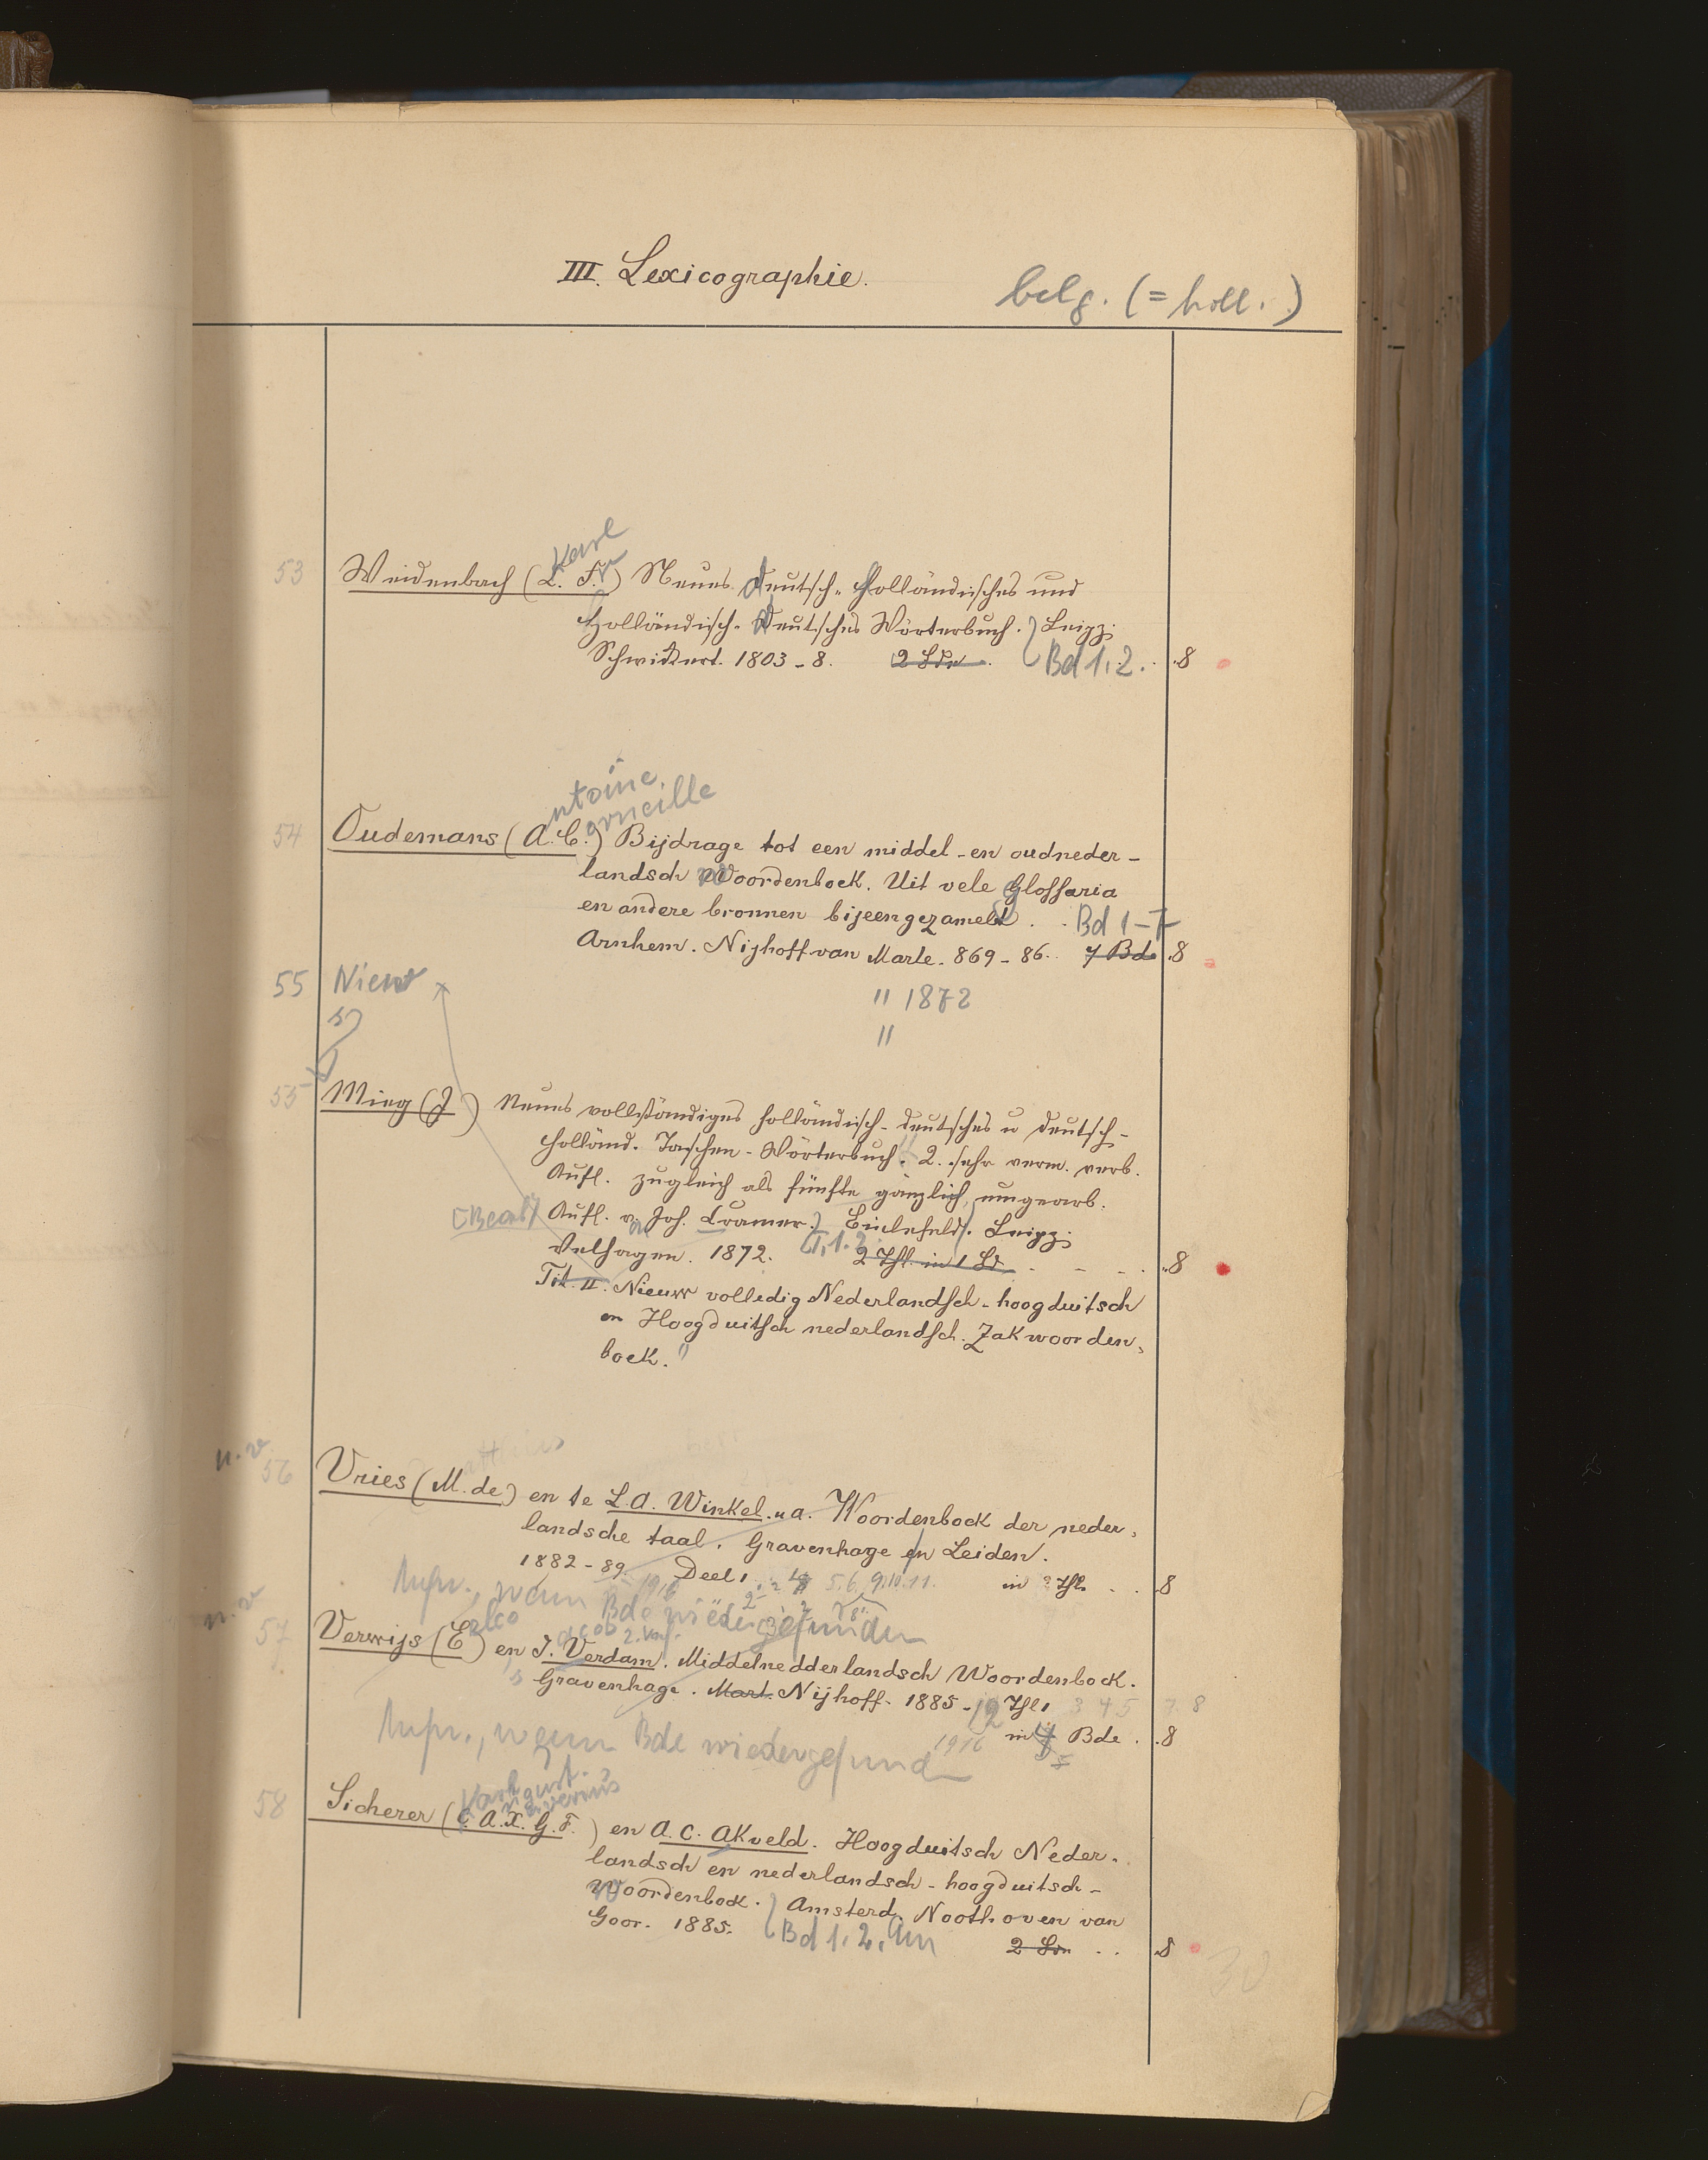 III. Lexicographie.
belg. (= holl.)
Karl
53 Weidenbach (C. F.) Neues deutsch-holländisches und
holländisch-deutsches Wörterbuch. Leipz.
Schwickert. 1803-8. 2 Bde. Bd 1.2. 8
ntoine
orneille
54 Oudemans (A. C.) Bijdrage tot een middel-en oudneder-
landsch Woordenboek. Uit vele Glossaria
en andere bronnen bijeengezameld . . Bd 1-7
Arnhem. Nijhoff van Marle. 869-86. 7 Bde .8
55 Nieuw " 1872
"
55 Mieg (J.) Neues vollständiges holländisch-deutsches u deutsch-
holländ. Taschen-Wörterbuch. 2. sehr verm. verb.
Aufl. zugleich als fünfte gänzlich umgearb.
[Bearb] Aufl. v. Joh. Cramer. Bielefeld. Leipz.
Velhagen. 1872. T. 1.2. 2 Thl. in 1 Bd. - - - . 8
Tit. II. Nieuw volledig Nederlandsch-hoogduitsch
en Hoogduitsch nederlandsch. Zakwoorden,
boek."
n. v.
56 Vries (M. de) en te L. A. Winkel. u a. Woordenboek der neder,
landsche taal. Gravenhage en Leiden.
1882-89. Deel 1 5. 6. 9. 10. 11. in 3 Thl. . . 8
wenn Bde wiedergefunden
n. v. elco acob 2. Verf.
57 Verwijs (E.) en J. Verdam. Middelnedderlandsch Woordenboek.
Gravenhage. Mart. Nijhoff. 1885-12 Thl 1 3 4 5 7. 8
1916 in Bde . .8
wenn Bde wiedergefunden
Karl August.
averius
58 Sicherer (C. A. X. G. F.) en A. C. Akveld. Hoogduitsch Neder.
landsch en nederlandsch-hoogduitsch-
Woordenboek. Amsterd. Nooth oven van
Goor. 1885. Bd 1. 2. 2 Bde . . 8
30